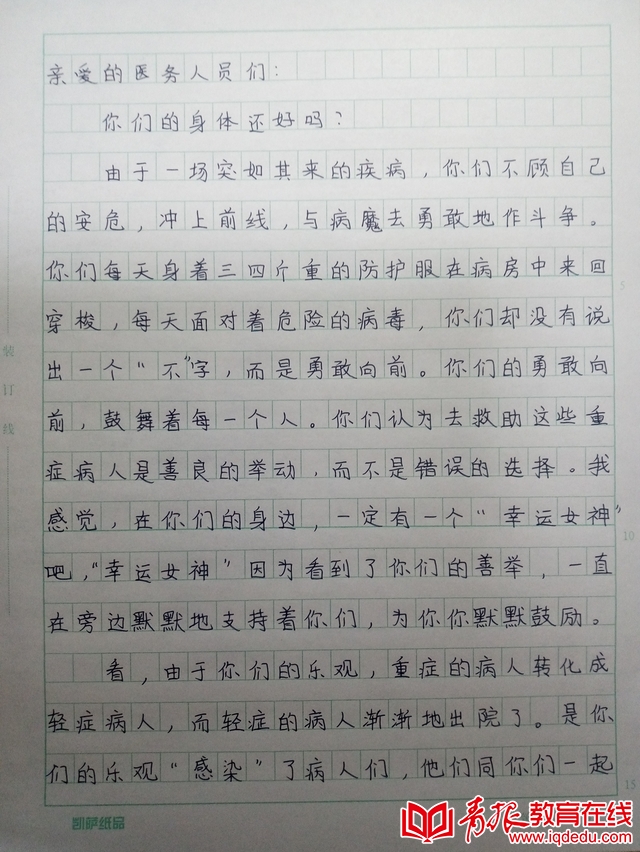 亲爱的医务人员们：
你们的身体还好吗？
由于一场突如其来的疾病，你们不顾自己
的安危，冲上前线，与病魔去勇敢地作斗争。
你们每天身着三四个重的防护服在病房中来回
穿梭，每天面对着危险的病毒，你们却没有说
出一个“不”字，而是勇敢向前。你们的勇敢向
前，鼓舞着每一个人。你们认为去救助这些重
症病人是善良的举动，而不是错误的选择。我
感觉，在你们的身边，一定有一个“幸运女神”
吧，“幸运女神”因为看到了你们的善举，一直
在旁边默默地支持着你们，为你你默默鼓励。
看，由于你们的乐观，重症的病人转化成
轻症病人，而轻症的病人渐渐地出院了。是你
们的乐观“感染”了病人们，他们同你们一起
装
订
线
5
10
15
凯萨纸品
青报教育在线
www.iqdedu.com